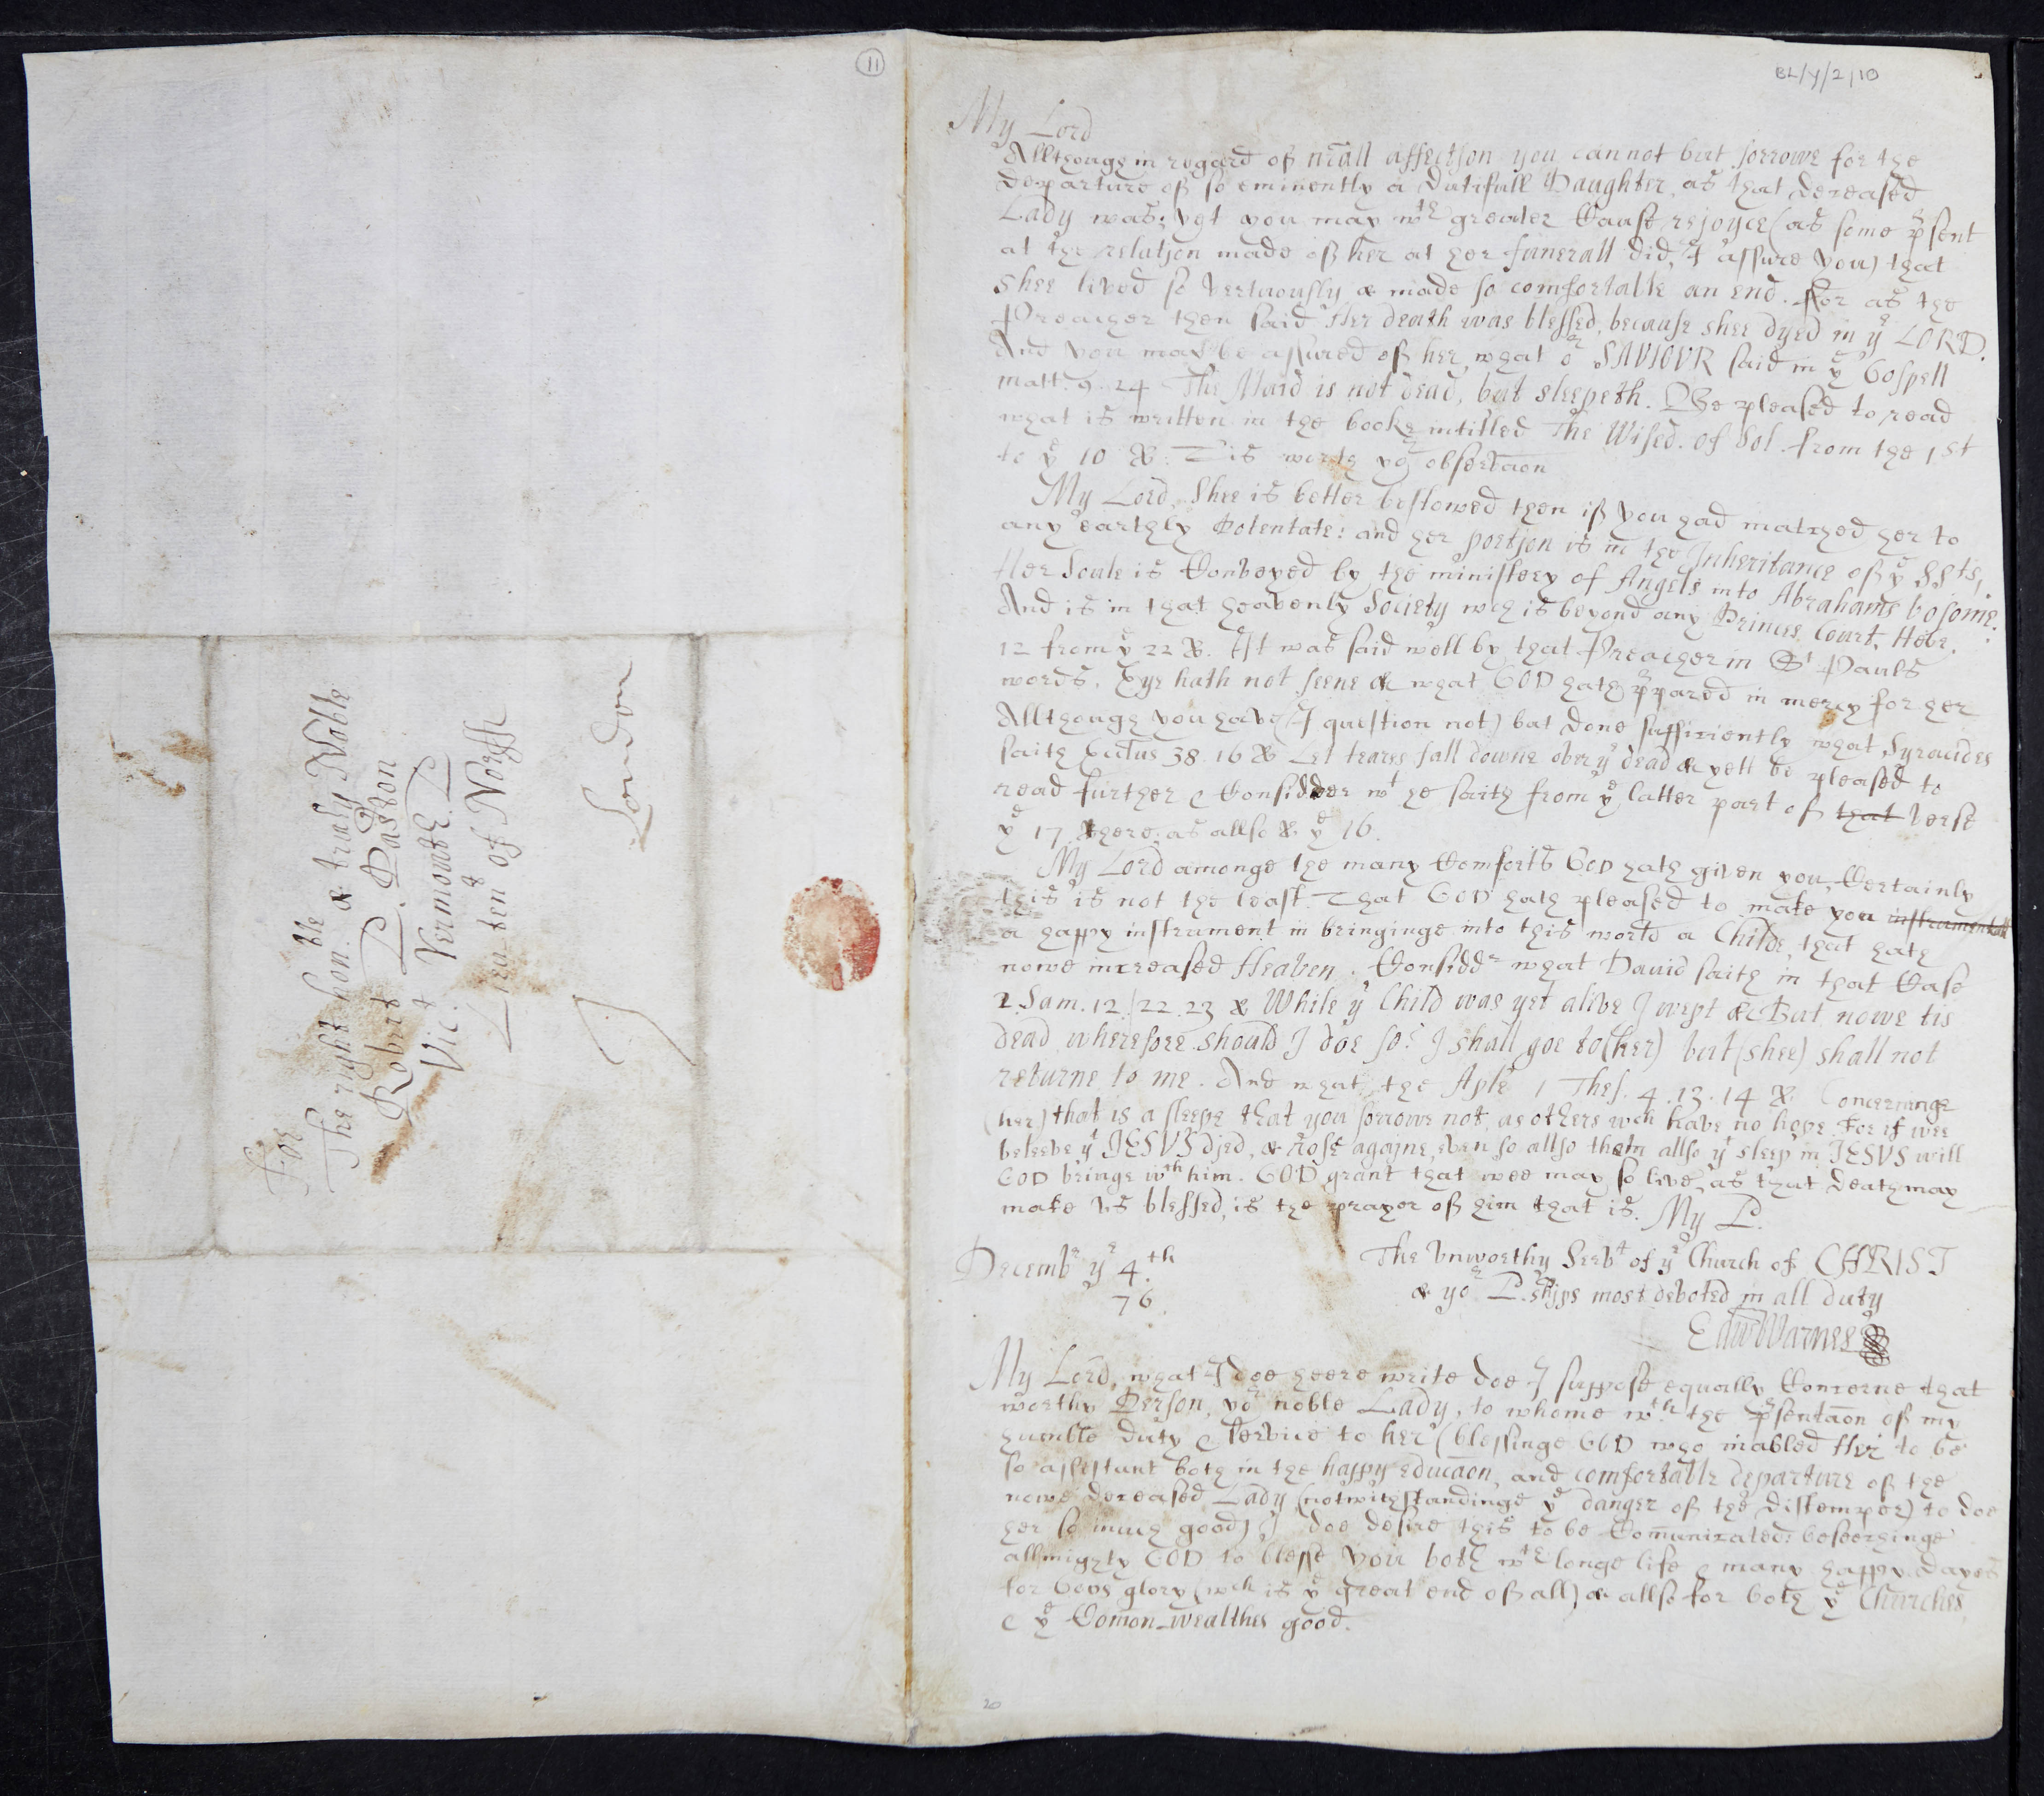 11
BL/Y/2/10
My Lord
Allthough in regard of nrāll affectjon you cannot but sorrowe for the
departure of so eminently a dutifull Daughter, as that deceased
Lady was; yet you may wth greater Cause rejoyce (as some psent
at the relatjon made of her at her funerall did, I assure you) that
shee lived so vertuously & made so comfortable an end. For as the
Preacher then said Her death was blessed, because shee dyed in ye LORD.
And you may be assured of her, what or SAVIOVR said in ye Gospell
Matt. 9. 24 The Maid is not dead, but sleepeth. Be pleased to read
what is written in the booke intitled The Wised. of Sol. from the 1st
to ye 10 &. Tis worth yor observaon
My Lord, Shee is better bestowed then if you had matched her to
any earthly Potentate: and her portjon is in the Inheritance of ye SSts,
Her Soule is Conveyed by the ministery of Angels into Abrahams bosome.
And is in that heavenly Society wch is beyond any Princes Court. Hebr.
12 from ye 22 &. It was said well by that Preacher in St Pauls
words, Eye hath not seene & what GOD hath ppared in mercy for her
Allthough you have (I question not) but done sufficiently what Syracides
saith Ecclus 38. 16 & Let teares fall downe over ye dead & yett be pleased to
read further & Considder wt he saith from ye latter part of that verse
ye 17 there: as allso & ye 16.
My Lord amonge the many Comforts GOD hath given you, Certainly
this is not the least. That GOD hath pleased to make you instrumentall
a happy instrument in bringinge into this world a Childe, that hath
nowe increased Heaven. Considdr what David saith in that Case
2. Sam. 12. 22. 23 & While ye Child was yet alive I wept & But nowe tis
dead wherefore should I doe so? I shall goe to (her) but (shee) shall not
returne to me. And what the Aple 1 Thes. 4. 13. 14 &. Concerninge
(her) that is a sleepe that you sorrowe not, as others wch have no hope. For if wee
beleeve yt JESVS djed, & rose agajne, even so allso them allso yt sleep in JESVS will
GOD bringe wth him. GOD grant that wee may so live, as that death may
make vs blessed, is the prayer of him that is. My L.
Decembr ye 4th.
76.
The vnworthy Servt of ye Church of CHRIST
& yor L.shjps most devoted in all duty
Edw Warnes
My Lord, what I doe heere write doe I suppose equally Concerne that
worthy Person, yor noble Lady, to whome wth the psentaōn of my
humble duty & service to her (blessinge GOD who inabled Her to be
so assistant both in the happy educaōn, and comfortable departure of the
nowe deceased Lady (notwithstandinge ye danger of the distemper) to doe
her so much good) I doe desire this to be Comūnicated: beseechinge
allmighty GOD to blesse you both wth longe life & many happy dayes
for Gods glory (wch is ye great end of all) & allso for both ye Churches,
& ye Comon-wealthes good.
20
For
The right honble & truly Noble
Robert L. Paston
Vict Yermouth. L
Lieutent of Norff
London